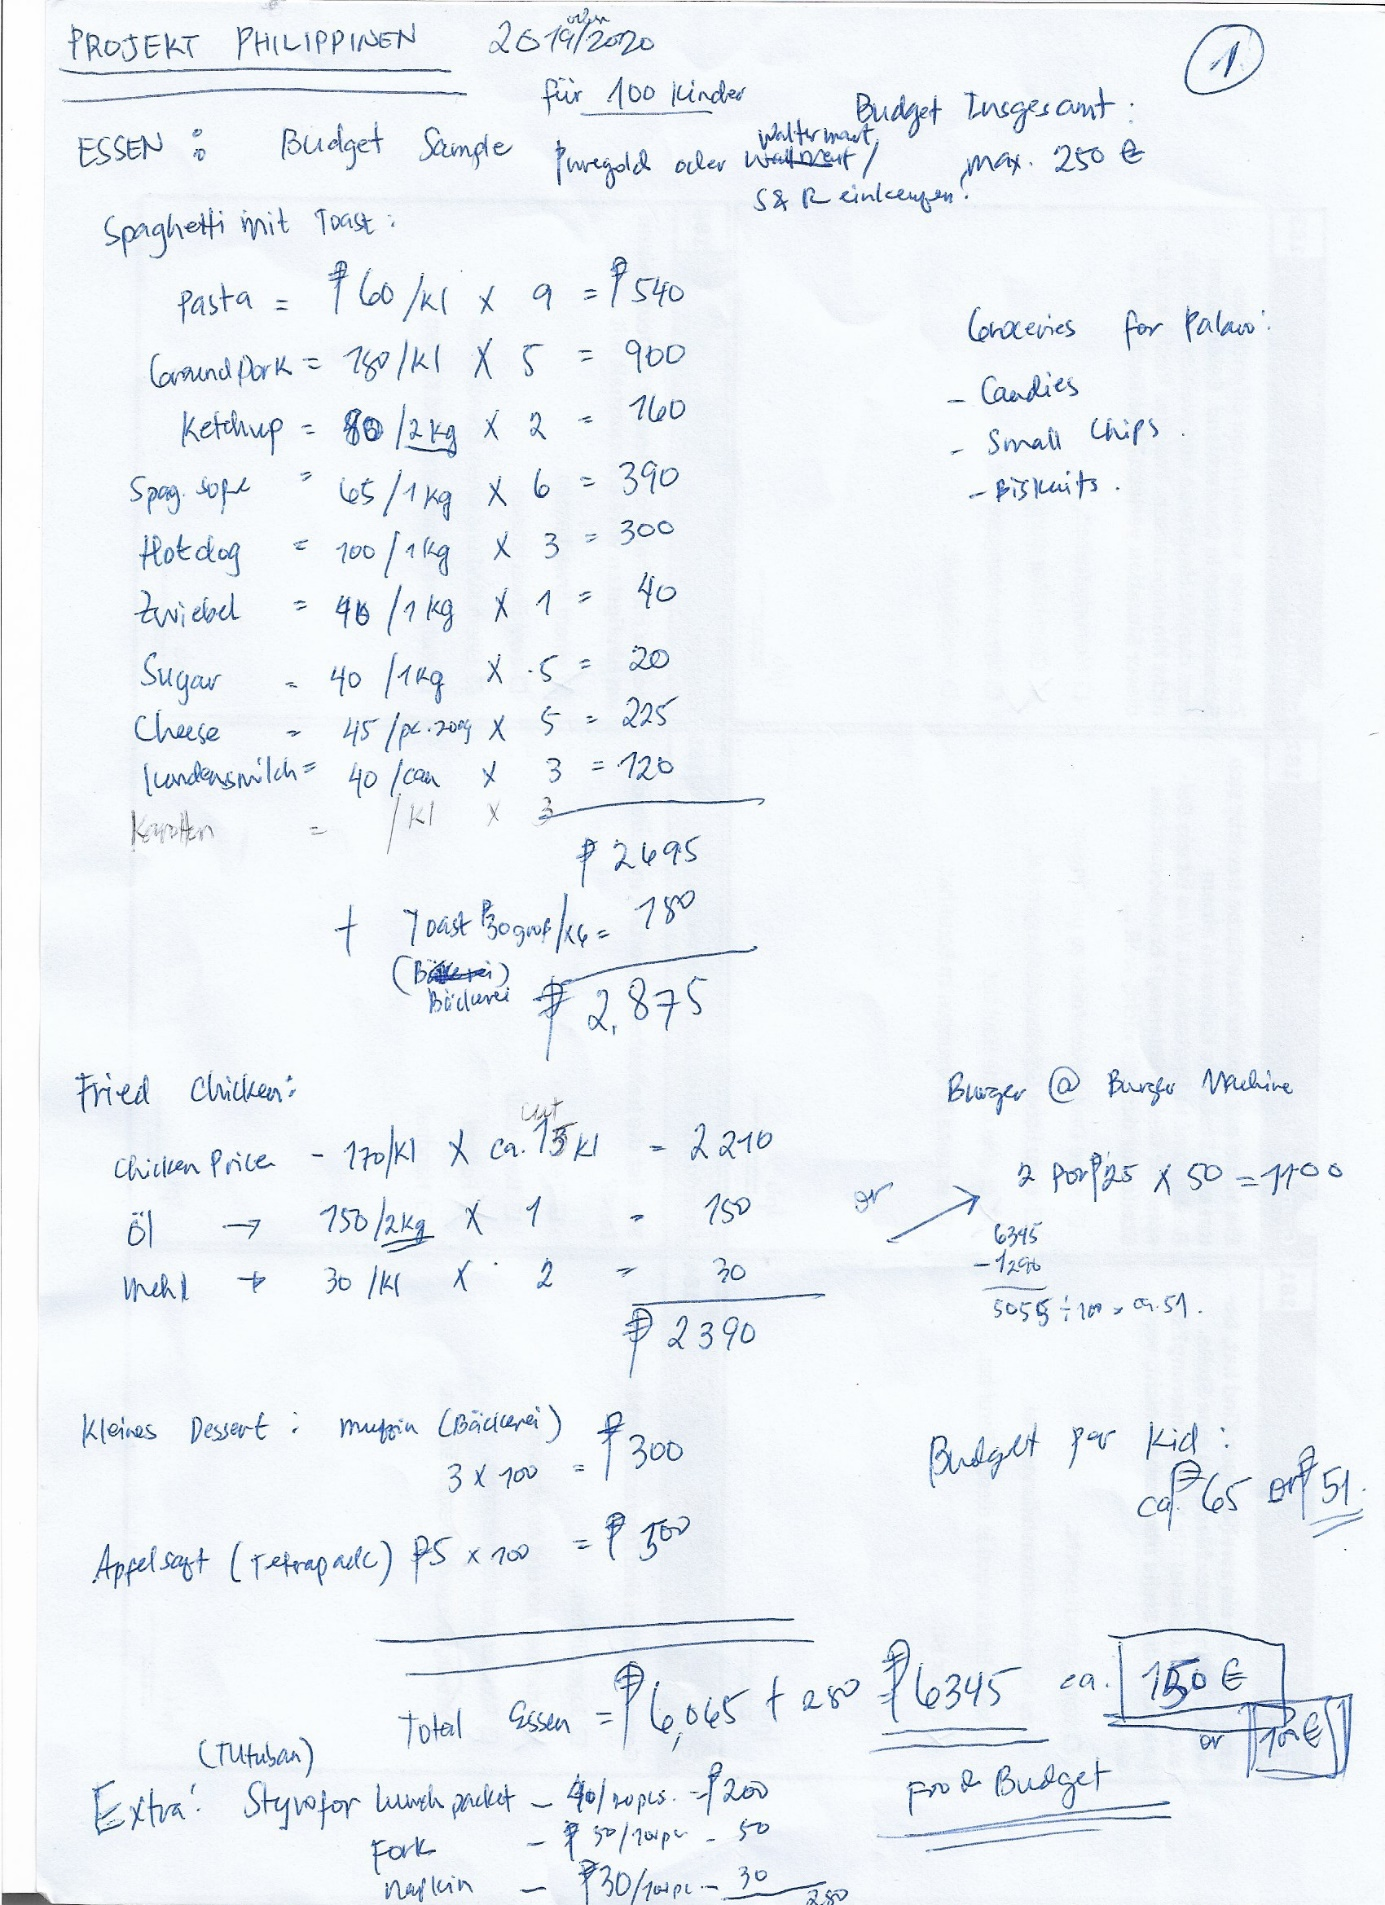 PROJEKT PHILIPPINEN 2019/2020
1
für 100 Kinder
Budget Insgesamt:
max. 250 €
ESSEN: Budget Sample
Puregold oder Waltermart/
S&R einkaufen!
Spaghetti mit Toast:
Pasta = ₱60/kl x 9 = ₱540
Ground Pork = 180/kl x 5 = 900
Ketchup = 80/2kg x 2 = 160
Spag. soße = 65/1kg x 6 = 390
Hotdog = 100/1kg x 3 = 300
Zwiebel = 40/1kg x 1 = 40
Sugar = 40/1kg x .5 = 20
Cheese = 45/pc. 200g x 5 = 225
Kondensmilch = 40/can x 3 = 120
Karotten = /kl x 3
₱2695
+ Toast ₱30 groß/x6 = 180
(Bäckerei)
Bäckerei
₱2,875
Groceries for Palaro:
- Candies
- Small Chips.
- Biskuits.
Fried Chicken:
cut
Chicken Price - 170/kl x ca. 13 kl = 2210
Öl → 150/2kg x 1 = 150
Mehl → 30/kl x 2 = 30
₱2390
or
Burger @ Burger Machine
2 for ₱25 x 50 = 1100
6345
-1290
5055 ÷ 100 = ca. 51.
Kleines Dessert: Muffin (Bäckerei)
3 x 100 = ₱300
Apfelsaft (Tetrapack) ₱5 x 100 = ₱500
Budget per Kid:
ca. ₱65 or ₱51.
Total Essen = ₱6,065 + 280 = ₱6345 ca. 150 €
or 100 €
Food Budget
(Tutuban)
Extra: Styrofor Lunch packet - 40/20pcs. = ₱200
Fork - ₱50/100pc - 50
Napkin - ₱30/100pc - 30
280